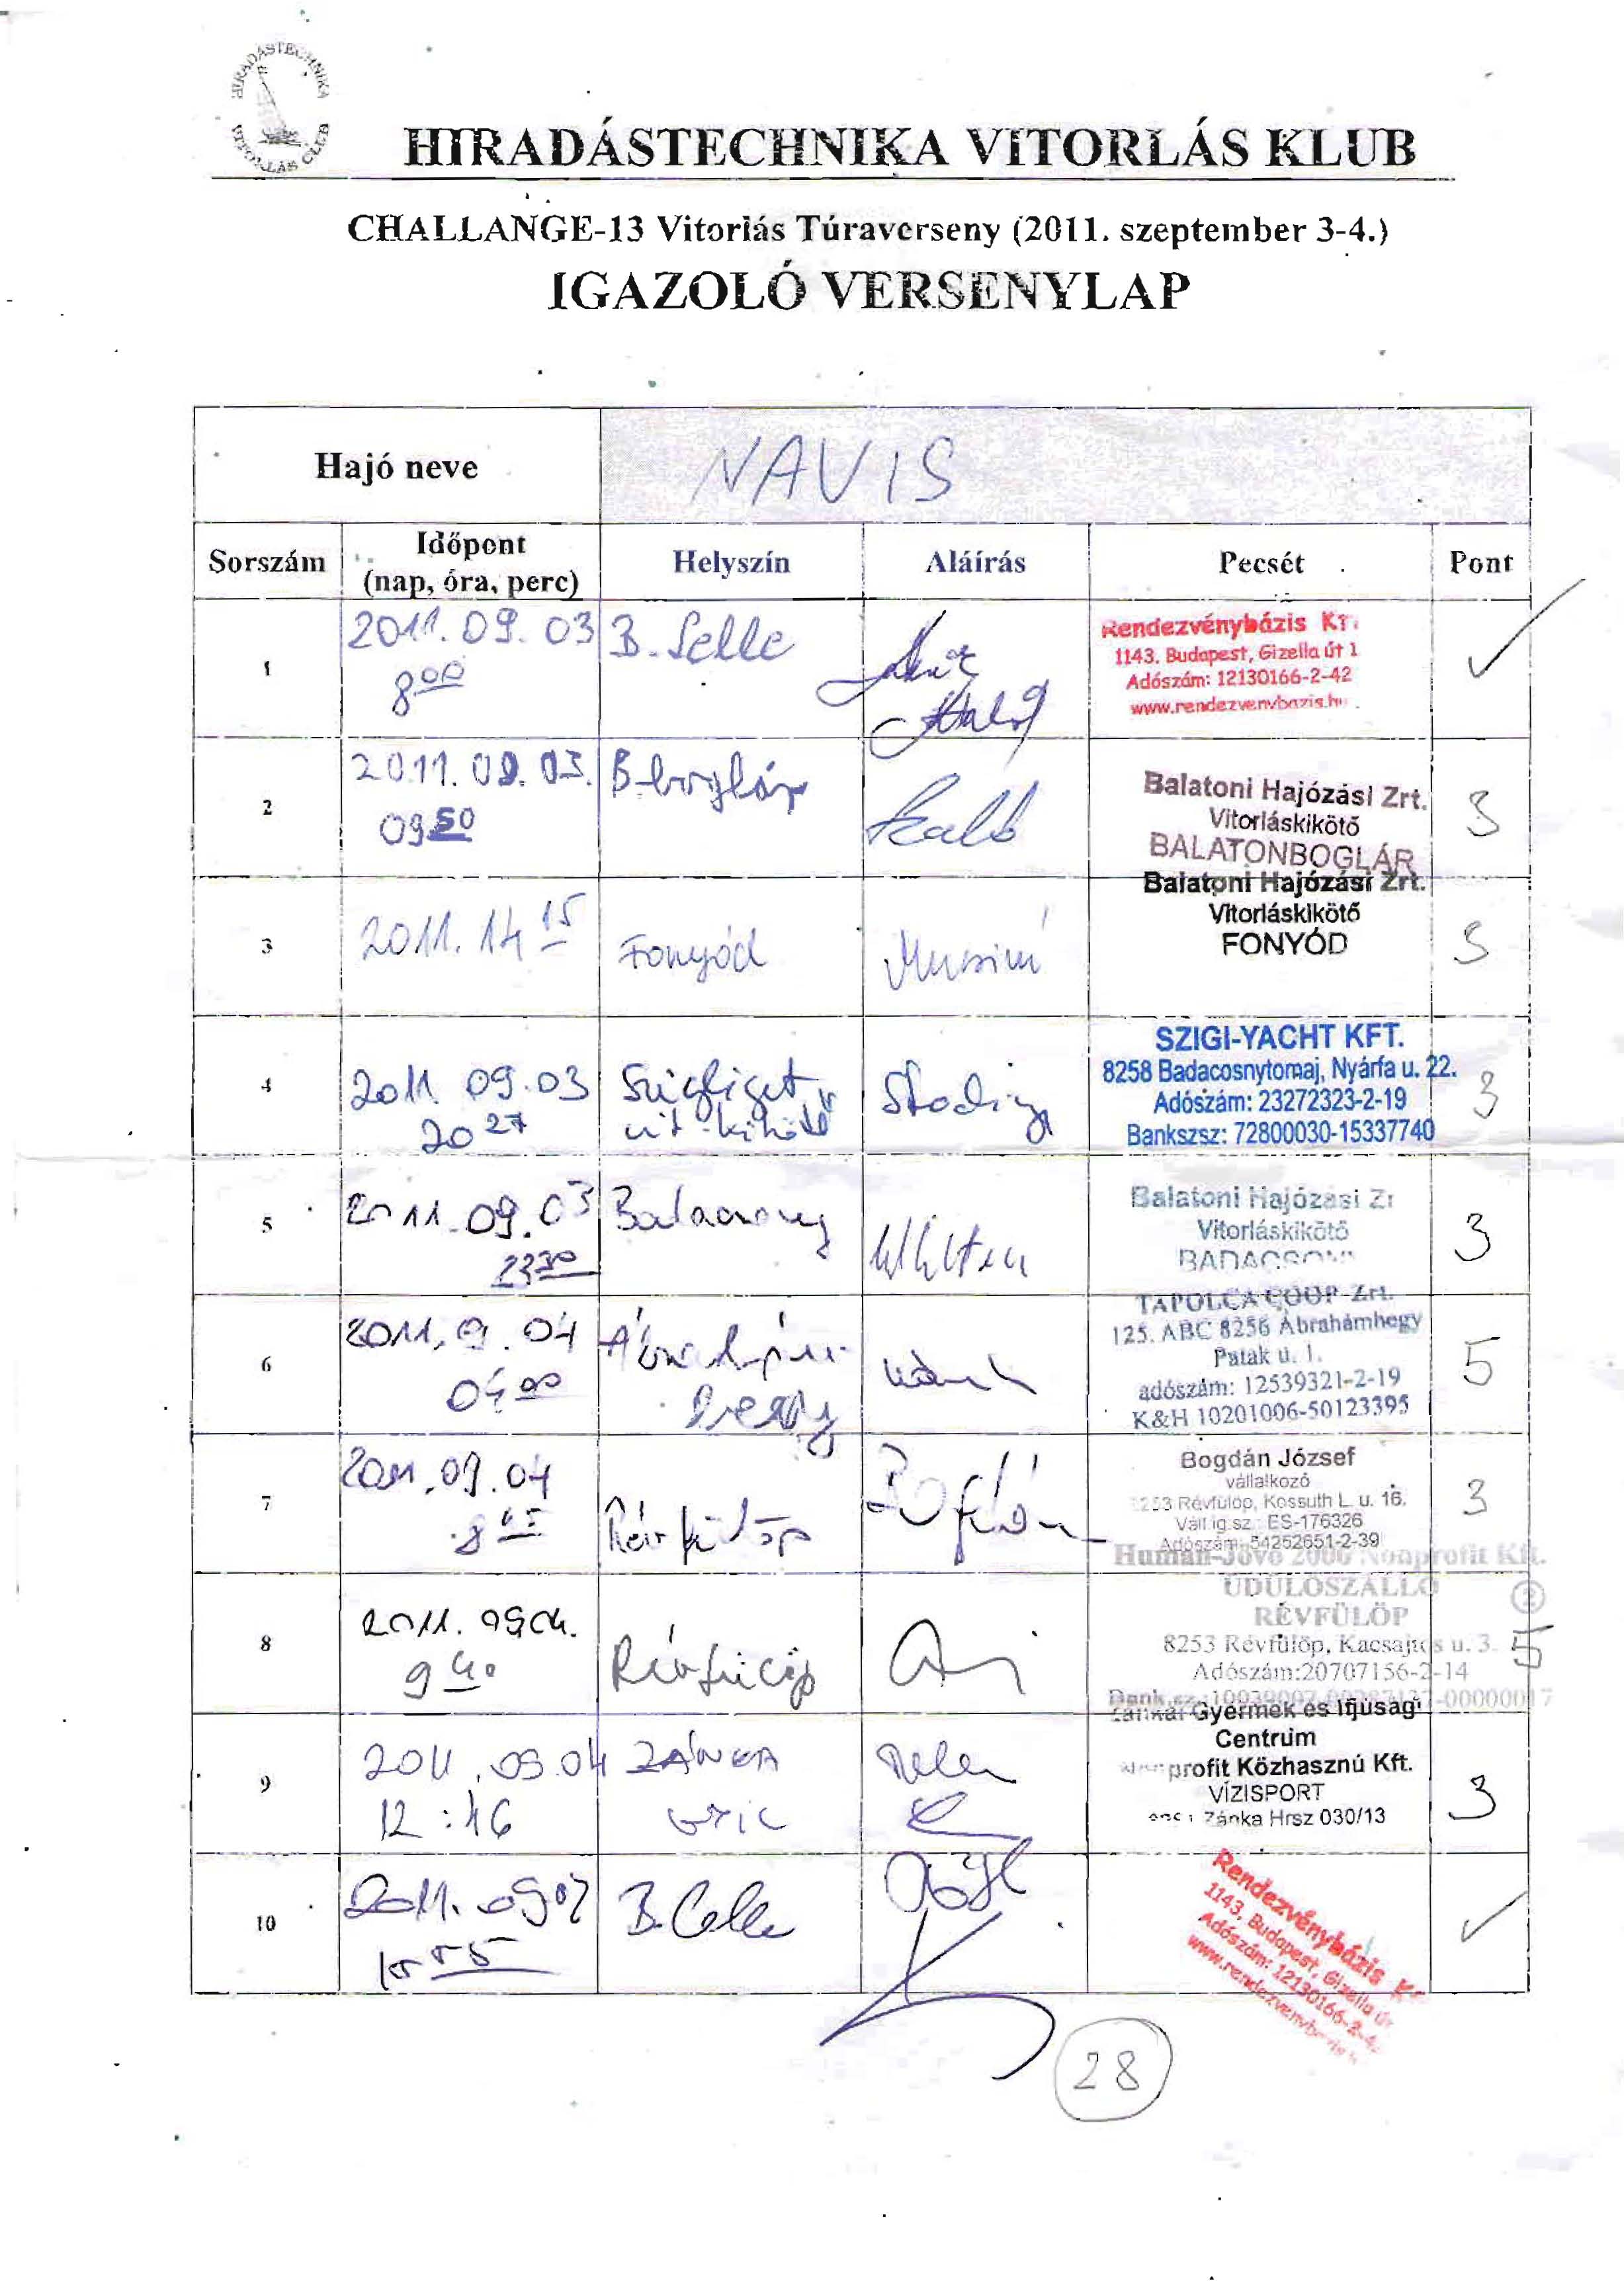 HIRADÁSTECHNIKA
VITORLÁS CLUB
HIRADÁSTECHNIKA VITORLÁS KLUB
CHALLANGE-13 Vitorlás Túraverseny (2011. szeptember 3-4.)
IGAZOLÓ VERSENYLAP
Hajó neve NAVIS
Sorszám Időpont (nap, óra, perc) Helyszín Aláírás Pecsét Pont
1
2011.09.03
8 00
B. Lelle
Rendezvénybázis Kf.
1143. Budapest, Gizella út 1
Adószám: 12130166-2-42
www.rendezvenybazis.hu
2
2011.09.03.
09 50
B-boglár
Szabó
Balatoni Hajózási Zrt.
Vitorláskikötő
BALATONBOGLÁR
3
3
2011. 14 15
Fonyód
Balatoni Hajózási Zrt.
Vitorláskikötő
FONYÓD
3
4
2011 09.03
20 27
Szigliget
vit. kikötő
SZIGI-YACHT KFT.
8258 Badacosnytomaj, Nyárfa u. 22.
Adószám: 23272323-2-19
Bankszsz: 72800030-15337740
3
5
2011.09.03
23 30
Badacsony
Balatoni Hajózási Zr
Vitorláskikötő
BADACSONY
3
6
2011.9.04
04 00
Ábrahám
hegy
TAPOLCA COOP Zrt.
125. ABC 8256 Ábrahámhegy
Patak u. 1.
adószám: 12539321-2-19
K&H 10201006-50123395
5
7
2011.09.04
8 05
Révfülöp
Bogdán József
vállalkozó
8253 Révfülöp, Kossuth L. u. 16.
Váll.ig.sz.: ES-176326
Adószám: 54252651-2-39
3
8
2011. 0904.
9 40
Révfülöp
Human-Jövő 2000 Nonprofit Kft.
ÜDÜLŐSZÁLLÓ
RÉVFÜLÖP
2
8253 Révfülöp, Kacsajtos u. 3.
Adószám:20707156-2-14
5
9
2011.09.04
12:46
ZÁNKA
Zánkai Gyermek és Ifjúsági
Centrum
Nonprofit Közhasznú Kft.
VÍZISPORT
Zánka Hrsz 030/13
3
10
2011.
55
B. Lelle
Rendezvénybázis K
1143. Budapest, Gizella út
Adószám: 12130166-2-4
www.rendezvenybazis
28